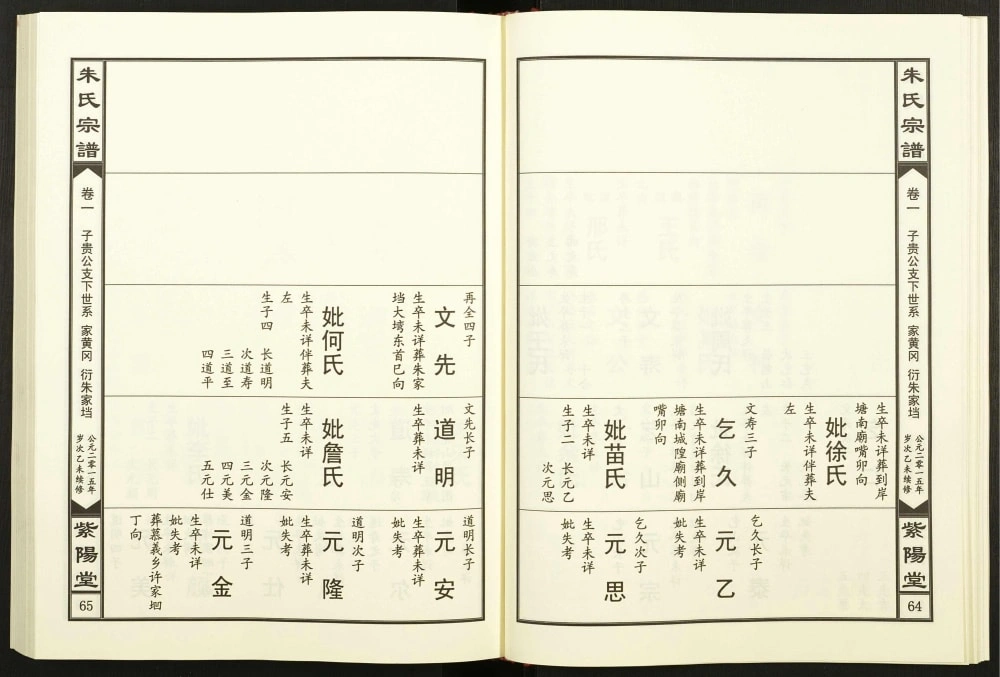 朱氏宗譜
卷一 子贵公支下世系 家黄冈 衍朱家垱
公元二零一五年
岁次乙未续修
紫陽堂
64
生卒未详葬到岸
塘南廟嘴卯向
妣徐氏
生卒未详伴葬夫
左
文寿三子
乞久
生卒未详葬到岸
塘南城隍廟側廟
嘴卯向
妣苗氏
生卒未详
生子二 长元乙
次元思
乞久长子
元乙
生卒未详
妣失考
乞久次子
元思
生卒未详
妣失考
再全四子
文先
生卒未详葬朱家
垱大塆东首巳向
妣何氏
生卒未详伴葬夫
左
生子四 长道明
次道寿
三道至
四道平
文先长子
道明
生卒葬未详
妣詹氏
生卒葬未详
生子五 长元安
次元隆
三元金
四元美
五元仕
道明长子
元安
生卒葬未详
妣失考
道明次子
元隆
生卒葬未详
妣失考
道明三子
元金
生卒未详
妣失考
葬慕義乡许家垇
丁向
朱氏宗譜
卷一 子贵公支下世系 家黄冈 衍朱家垱
公元二零一五年
岁次乙未续修
紫陽堂
65